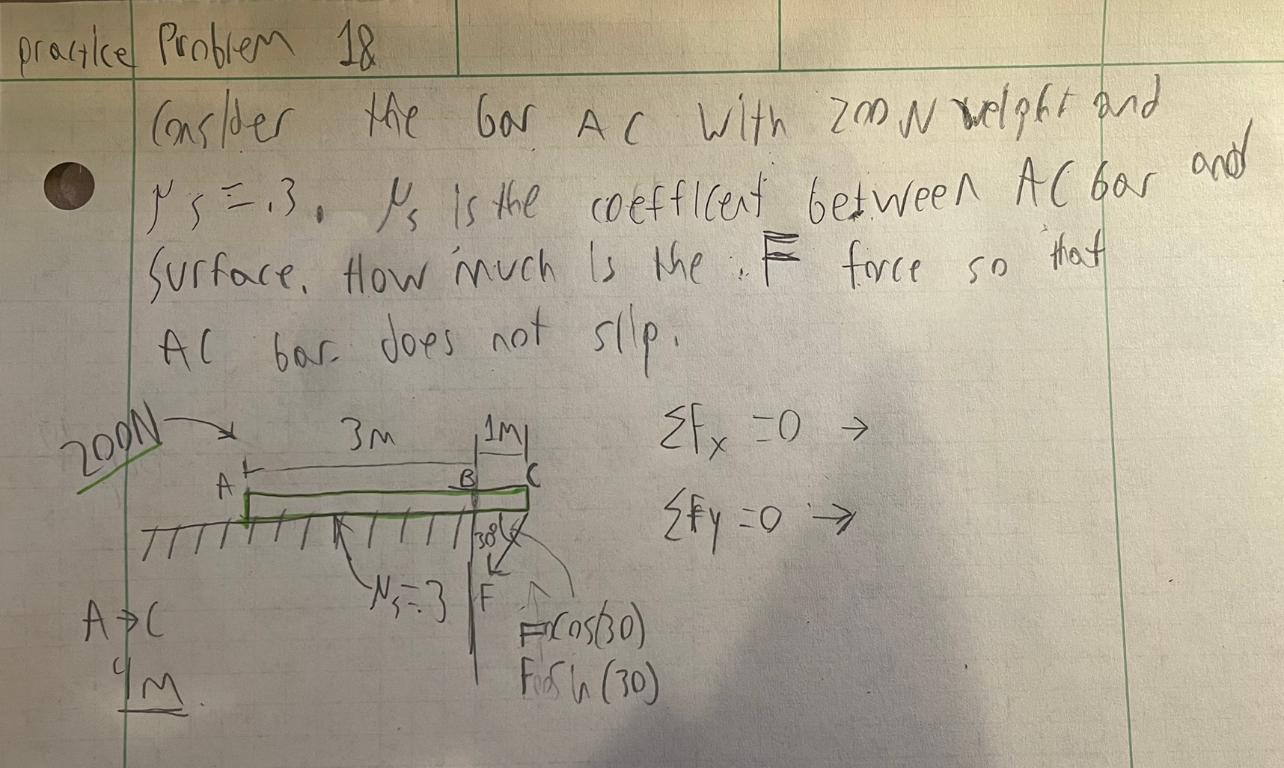 practice Problem 18
Consider the bar AC with 200N weight and
μs = .3. μs is the coefficent between AC bar and
surface. How much is the F force so that
AC bar does not slip.
200N
3M
1M
A
B
C
ΣFx = 0 →
ΣFy = 0 →
30°
F
μs = .3
A → C
4M
Fcos(30)
F sin(30)